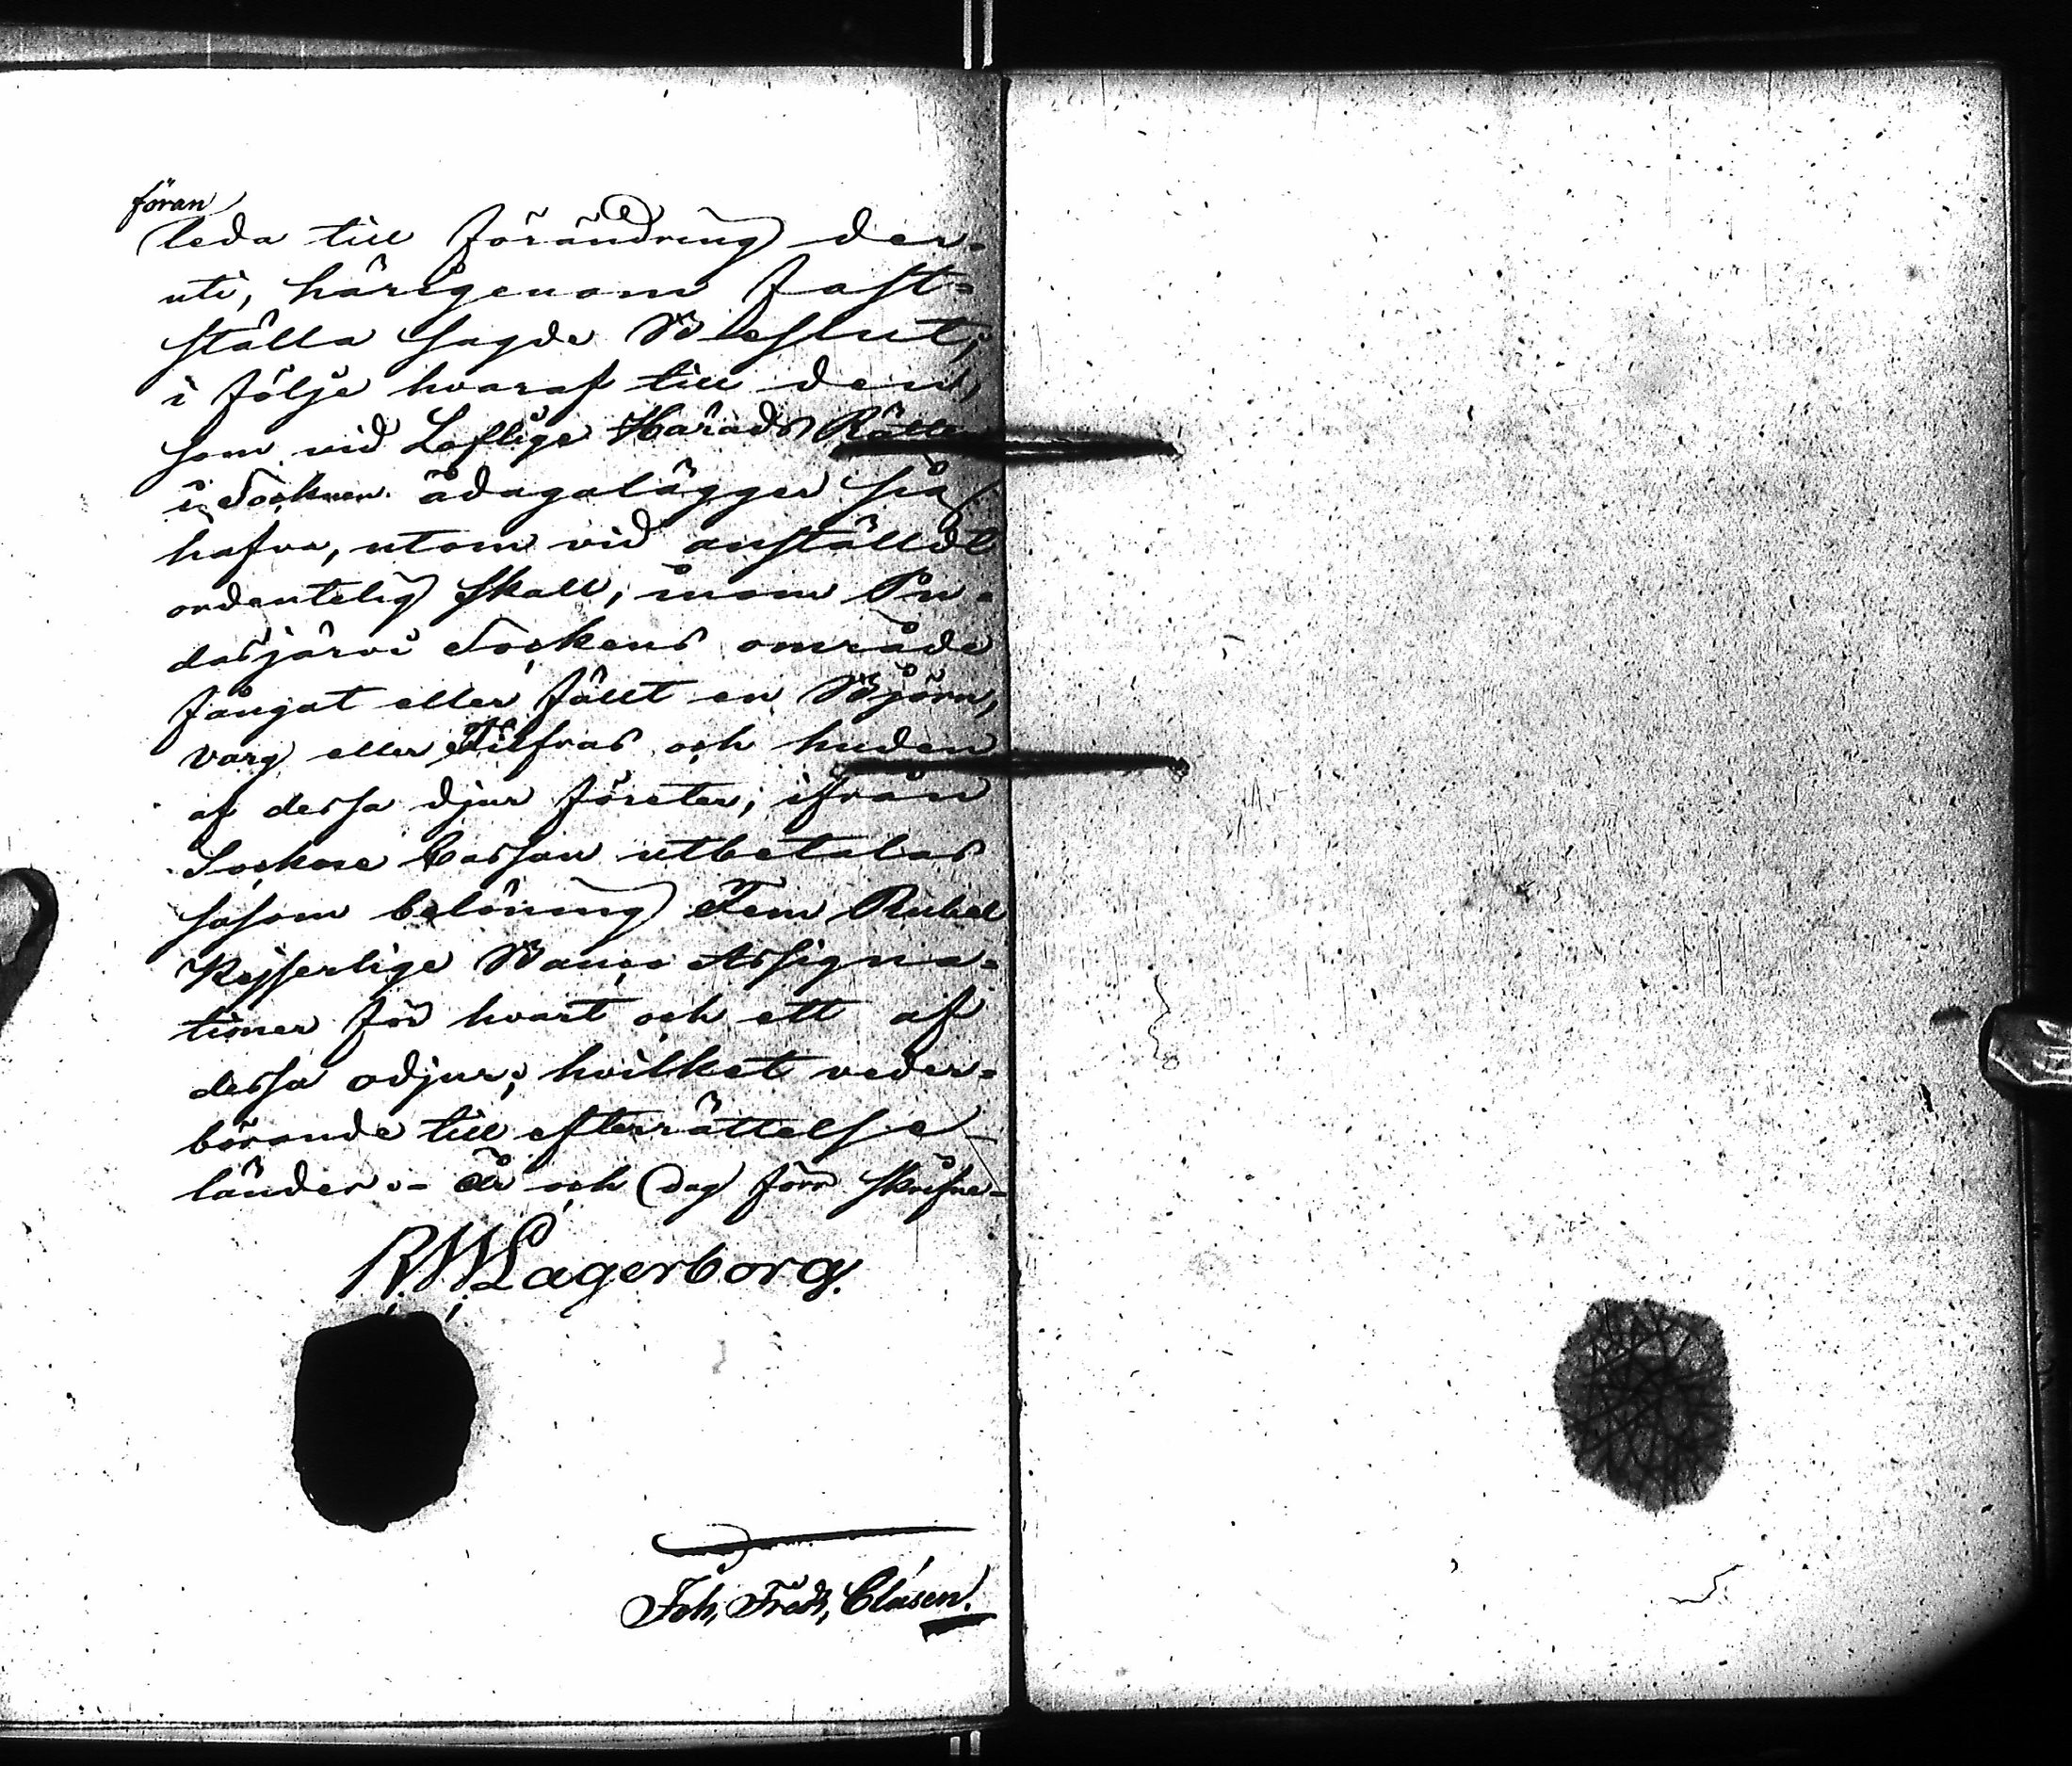 föran
leda till förändring der-
uti, härigenom fast-
ställa sagde Beslut;
i följe hvaraf till den,
som vid Loflige Härads Rätten
i Socknen ådagalägger sig
hafva, utom vid anställdt
ordentelig skall, inom Pu-
dasjärvi Sockens område
fångat eller fällt en Björn,
varg eller Filfras och huden
af dessa djur företer, ifrån
Sockne Cassan utbetalas
såsom belöning Fem Rubel
Kejserlige Banco Assigna-
tioner för hvart och ett af
dessa odjur; hvilket veder-
börande till efterrättelse
länder. - År och dag förr skrifne -
R. W. Lagerborg.
Joh. Fredr. Clasen.